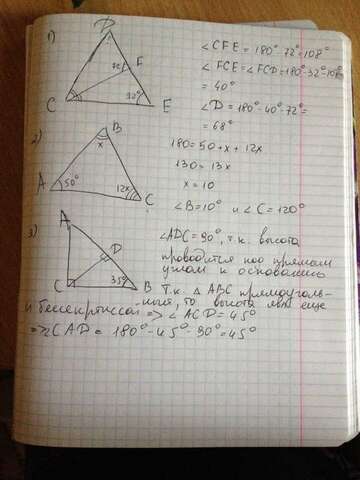 1)
D
F
72°
C
32°
E
∠CFE = 180°-72°=108°
∠FCE=∠FCD=180°-32°-108°
= 40°
∠D=180°-40°-72°=
= 68°
2)
B
x
A
50°
12x
C
180=50+x+12x
130=13x
x=10
∠B=10° и ∠C=120°
3)
A
D
C
35°
B
∠ADC=90°, т.к. высота
проводится под прямым
углом к основанию
Т.к. Δ ABC прямоуголь-
ный, то высота явл еще
и биссектриссой => ∠ACD=45°
=> ∠CAD = 180°-45°-90°=45°